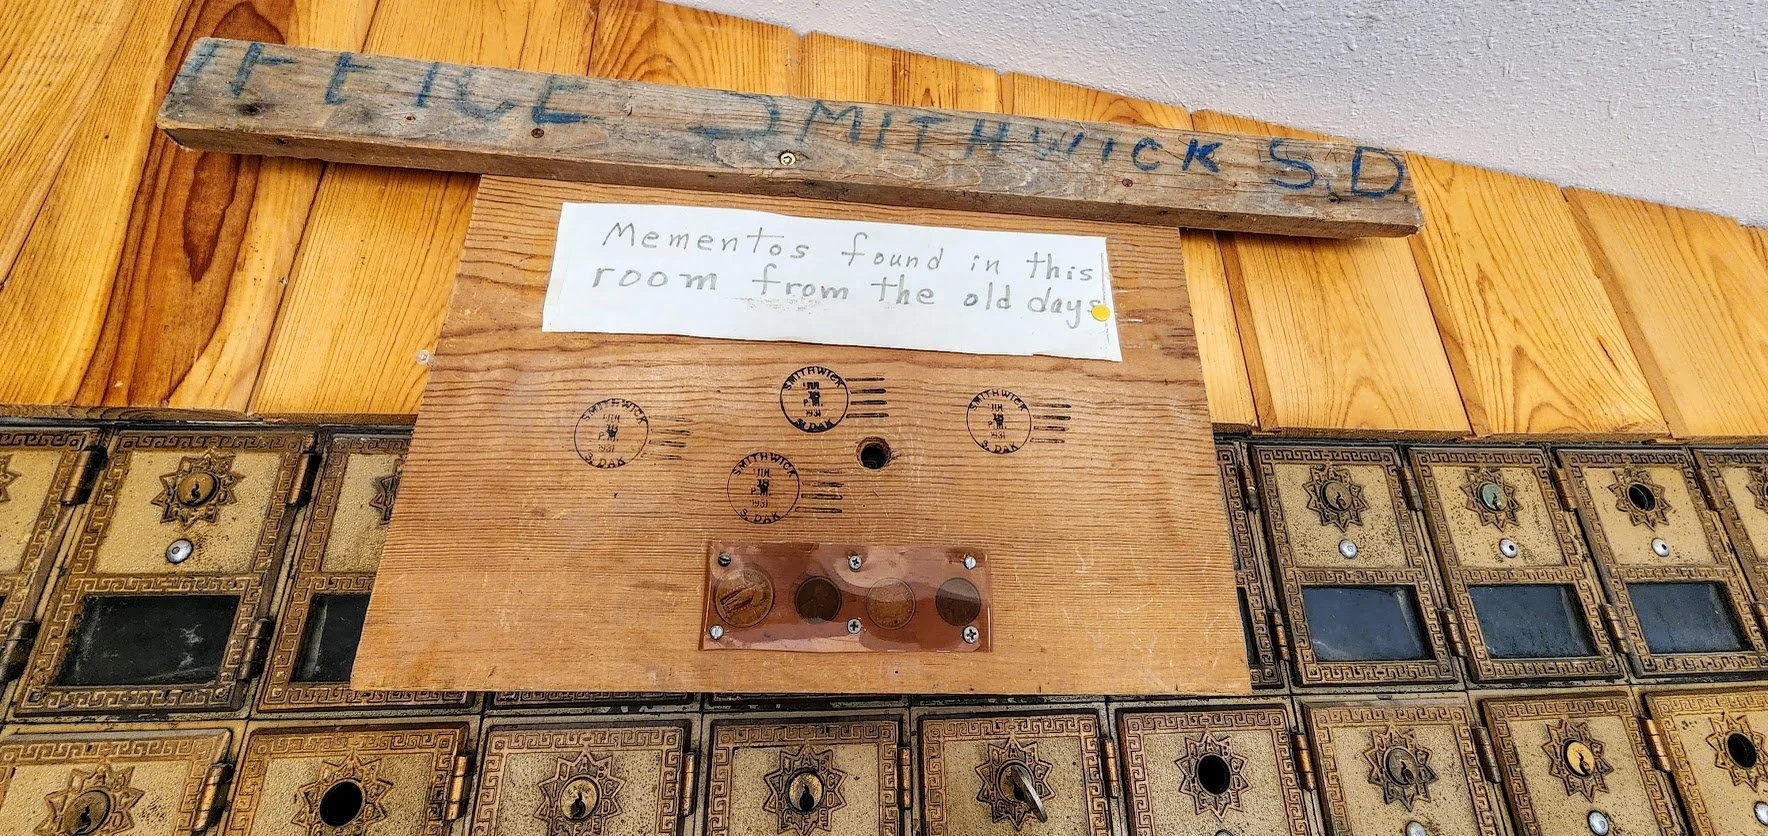 OFFICE SMITHWICK S.D.
Mementos found in this
room from the old days
SMITHWICK
P.M.
1931
S. DAK
SMITHWICK
P.M.
1931
S. DAK
SMITHWICK
P.M.
1931
S. DAK
SMITHWICK
P.M.
1931
S. DAK